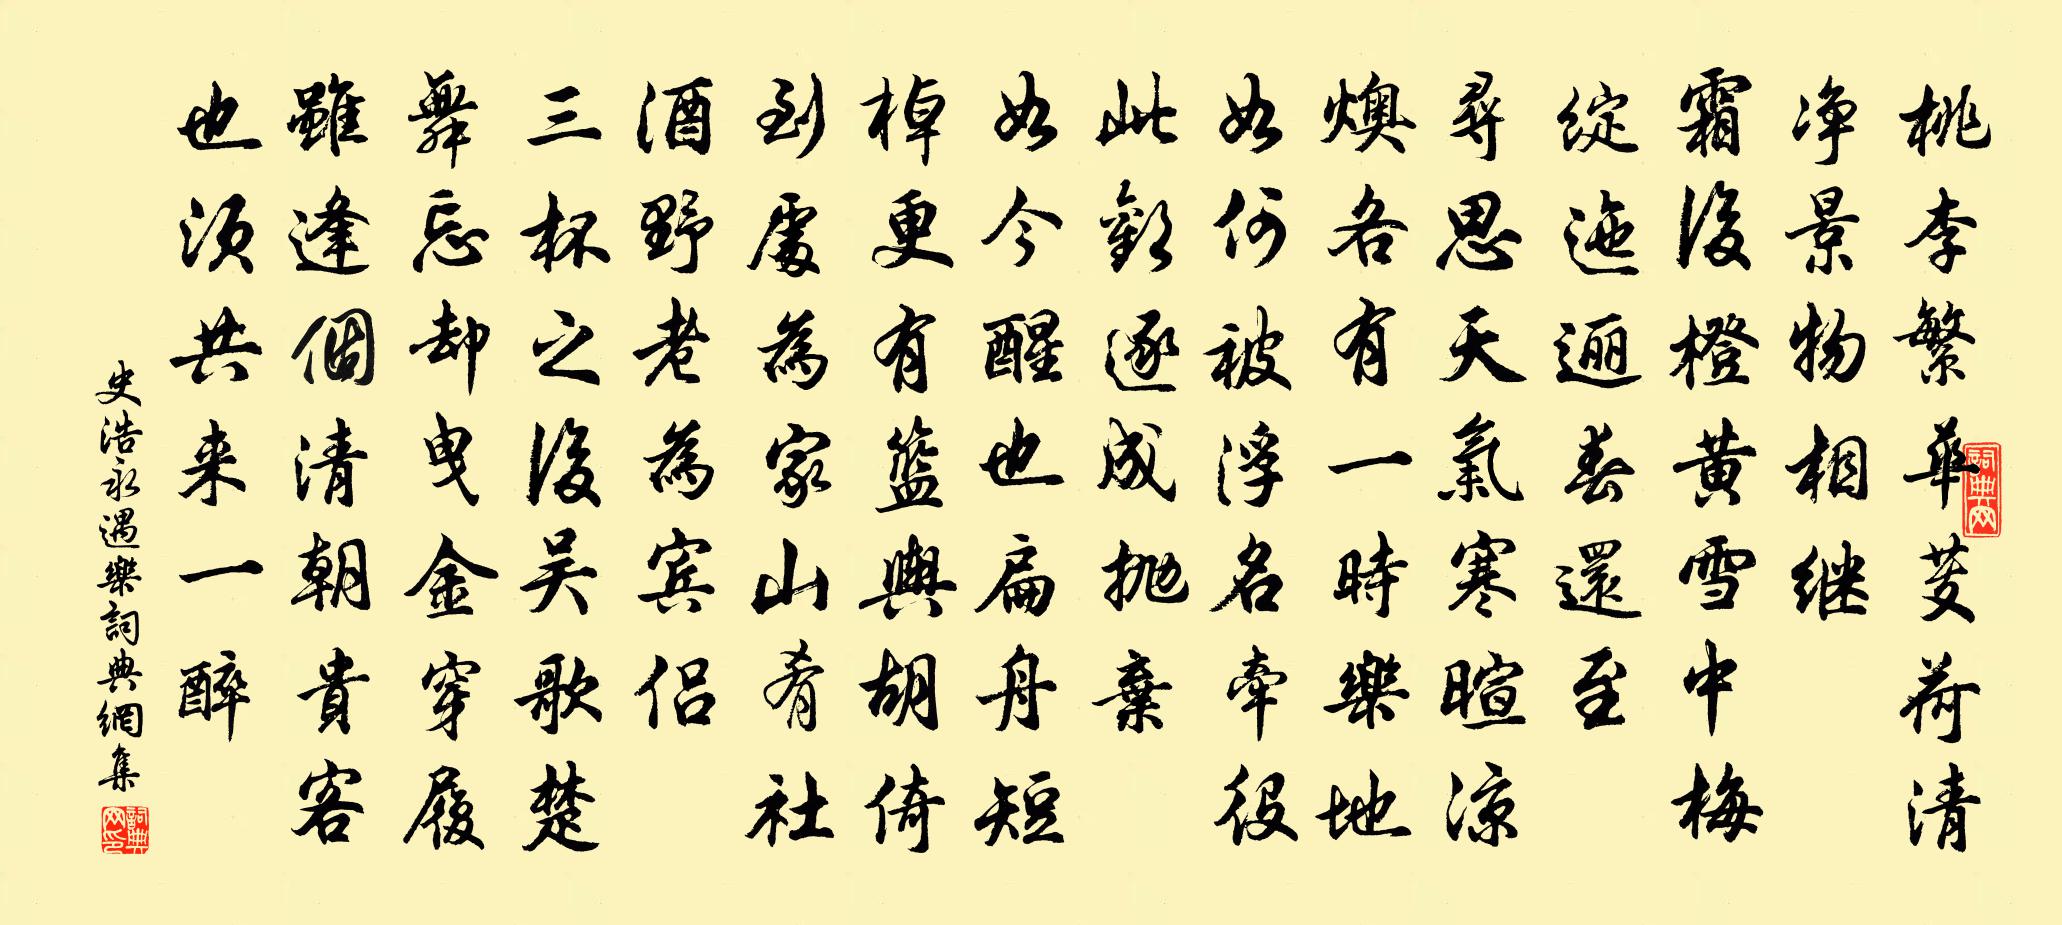 桃李繁華芰荷清
净景物相继
霜後橙黄雪中梅
綻迤逦春還至
尋思天氣寒暄凉
燠各有一時樂地
如何被浮名牽役
此歡逐成抛棄
如今醒也扁舟短
棹更有籃輿胡倚
到處為家山肴社
酒野老為宾侣
三杯之後吴歌楚
舞忘却曳金穿履
雖逢個清朝貴客
也须共来一醉
史浩永遇樂詞典網集
詞典网
詞典网印